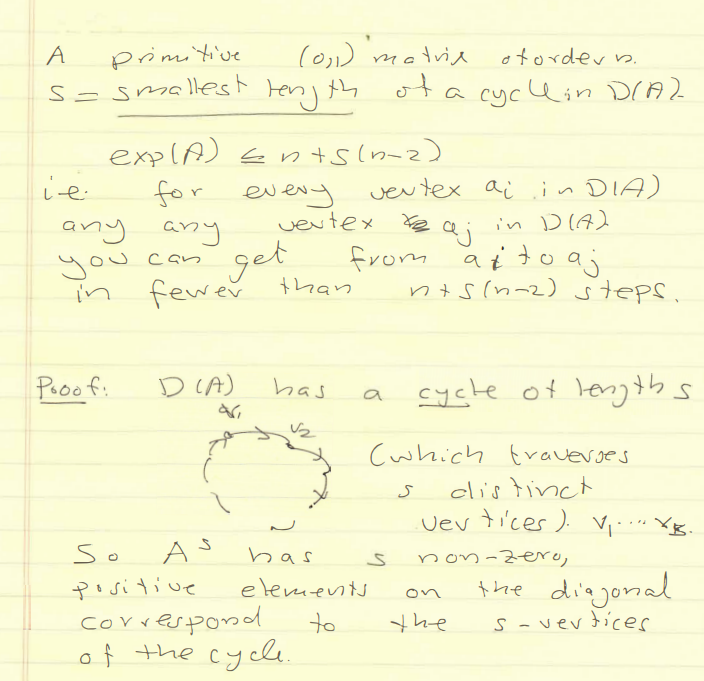 A primitive (0,1) matrix of order n.
s = smallest length of a cycle in D(A)
exp(A) ≤ n+s(n-2)
i.e. for every vertex ai in D(A)
any any vertex aj in D(A)
you can get from ai to aj
in fewer than n+s(n-2) steps.
Proof: D(A) has a cycle of length s
v1 v2
(which traverses
s distinct
vertices). v1....vs.
So A^s has s non-zero,
positive elements on the diagonal
correspond to the s-vertices
of the cycle.